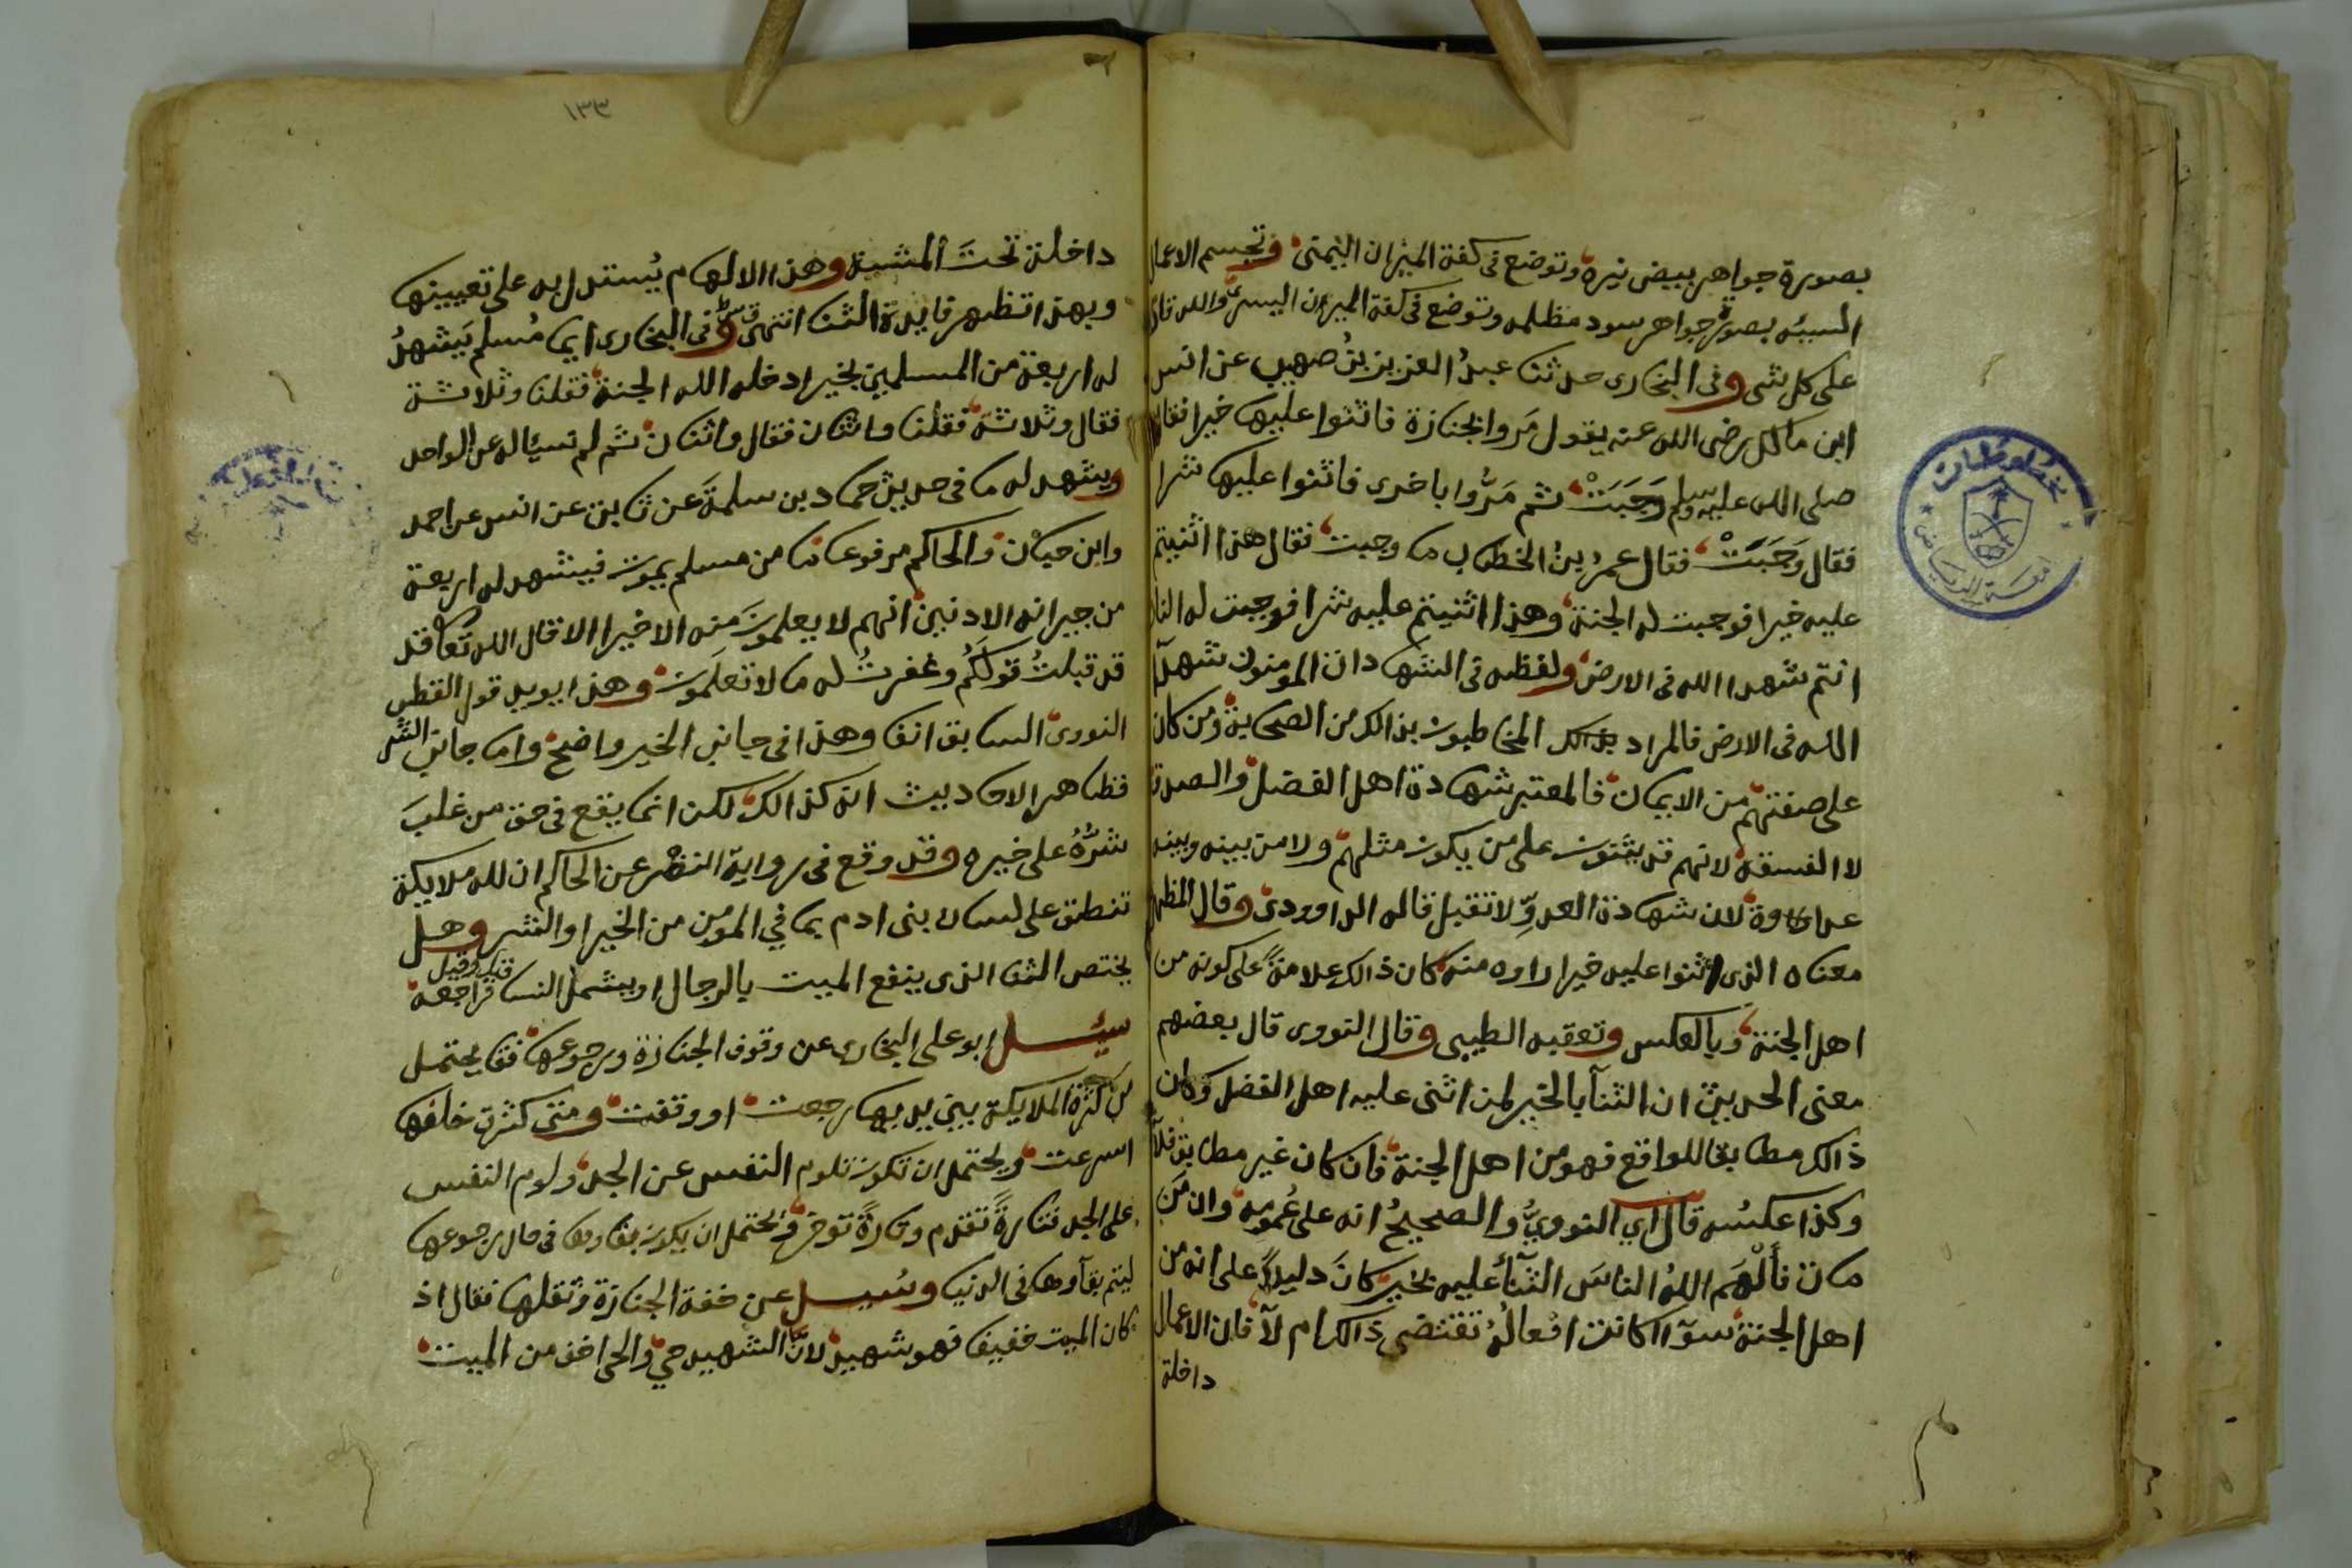 بصورة جواهر بيض نيرة وتوضع فى كفة الميزان اليمنى وتجسم الاعمال
السيئه بصورة جواهر سود مظلمه وتوضع فى كفة الميزان اليسرى والله قادر
على كل شى وفى البخارى حدثنا عبدُ العزيز بنُ صهيب عن انس
ابن مالك رضى الله عنه يقول مَروا بجنازة فاثنوا عليها خيرا فقال
صلى الله عليه وسلم وَجَبَتْ ثم مَرُّوا باخرى فاثنوا عليها شرا
فقال وَجَبَتْ فقال عمرُ بنُ الخطاب ما وجبت فقال هذا اثنيتم
عليه خيرا فوجبت له الجنة وهذا اثنيتم عليه شرا فوجبت له النار
انتم شهدا الله فى الارض ولفظه فى الشهادات المومنون شهدآ
الله فى الارض فالمراد المخاطبون بذالك من الصحابة ومن كان
على صفتهم من الايمان فالمعتبر شهادة اهل الفضل والصدق
لا الفسقة لانهم قد يثنون على من يكون مثلهم ولا من بينه وبينه
عداوة لان شهادة العدوِّ لا تقبل قاله الداوودى وقال المظهر
معناه الذى اثنوا عليه خيرا راوه منه كان ذالك علامةً على كونه من
اهل الجنة وبالعكس وتعقبه الطيبى وقال النووى قال بعضهم
معنى الحديث ان الثنآ بالخير لمن اثنى عليه اهل الفضل وكان
ذالك مطابقا للواقع فهو من اهل الجنة فان كان غير مطابق فلا
وكذا عكسُه قال اي النوويُّ والصحيحُ انه على عُمومه وان مَن
مات فأَلْهَم اللهُ الناسَ الثنآءَ عليه بخير كانَ دليلاً على انه من
اهل الجنة سوآ اكانت افعالُه تقتضى ذالك ام لآ فان الاعمال
داخلة
١٣٣
داخلة تحتَ المشية وهذا الالهام يُستدل به على تعيينها
وبهذا تظهر فايدة الثنا انتهى قس وفى البخارى ايما مُسلم يَشهدُ
له اربعة من المسلمين بخير ادخله الله الجنة فقلنا وثلاثة
فقال وثلاثة فقلنا واثنان فقال واثنان ثم لم نسئاله عن الواحد
ويشهد له ما فى حديث حماد بن سلمةَ عن ثابت عن انس عن احمد
وابن حبان والحاكم مرفوعا ما من مسلم يموت فيشهد له اربعة
من جيرانه الادنين انهم لا يعلمون منه الا خيرا الا قال الله تعا قد
قد قبلتُ قولَكُم وغفرتُ له ما لا تعلمون وهذا يويد قول القطب
النووى السابق انفا وهذا فى جانب الخير واضح واما جانب الشر
فظاهر الاحاديث انه كذالك لكن انما يقع فى حق من غلبَ
شرُّهُ على خيره وقد وقع فى رواية النضر عن الحاكم ان لله ملايكة
تنطق على لسان بنى ادم بما في المومن من الخير او الشر وهل
يختص الثنا الذى ينفع الميت بالرجال او يشمل النسا فراجعه
سيُــل ابو على البخارى عن وقوف الجنازة ورجوعها فقا يحتمل
كثرة الملايكة بين يديها رجعت او وقفت ومتى كثرت خلفها
اسرعت ويحتمل ان تكون تلوم النفس عن الجسد ولوم النفس
على الجسد فتارةً تقدم وتارةً توخر ويحتمل ان يكون بقاوها فى حال رجوعها
ليتم بقآوها فى الدنيا وسُيــل عن خفة الجنازة وثقلها فقال اذ
كان الميت خفيفا فهو شهيد لانَّ الشهيد حيّ والحى اخف من الميت